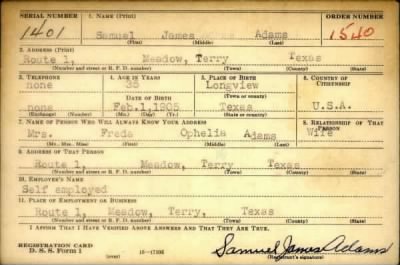 SERIAL NUMBER 1. NAME (Print) ORDER NUMBER
1401 Samuel James Adams 1540
(First) (Middle) (Last)
2. ADDRESS (Print)
Route 1, Meadow, Terry Texas
(Number and street or R. F. D. number) (Town) (County) (State)
3. TELEPHONE 4. AGE IN YEARS 5. PLACE OF BIRTH 6. COUNTRY OF CITIZENSHIP
none 35 Longview
DATE OF BIRTH (Town or county)
none Feb.1,1905 Texas U.S.A.
(Exchange) (Number) (Mo.) (Day) (Yr.) (State or country)
7. NAME OF PERSON WHO WILL ALWAYS KNOW YOUR ADDRESS 8. RELATIONSHIP OF THAT PERSON
Mrs. Freda Ophelia Adams Wife
(Mr., Mrs., Miss) (First) (Middle) (Last)
9. ADDRESS OF THAT PERSON
Route 1, Meadow, Terry Texas
(Number and street or R. F. D. number) (Town) (County) (State)
10. EMPLOYER'S NAME
Self employed
11. PLACE OF EMPLOYMENT OR BUSINESS
Route 1, Meadow, Terry, Texas
(Number and street or R. F. D. number) (Town) (County) (State)
I AFFIRM THAT I HAVE VERIFIED ABOVE ANSWERS AND THAT THEY ARE TRUE.
REGISTRATION CARD
D. S. S. Form 1 (over) Samuel James Adams
(Registrant's signature)